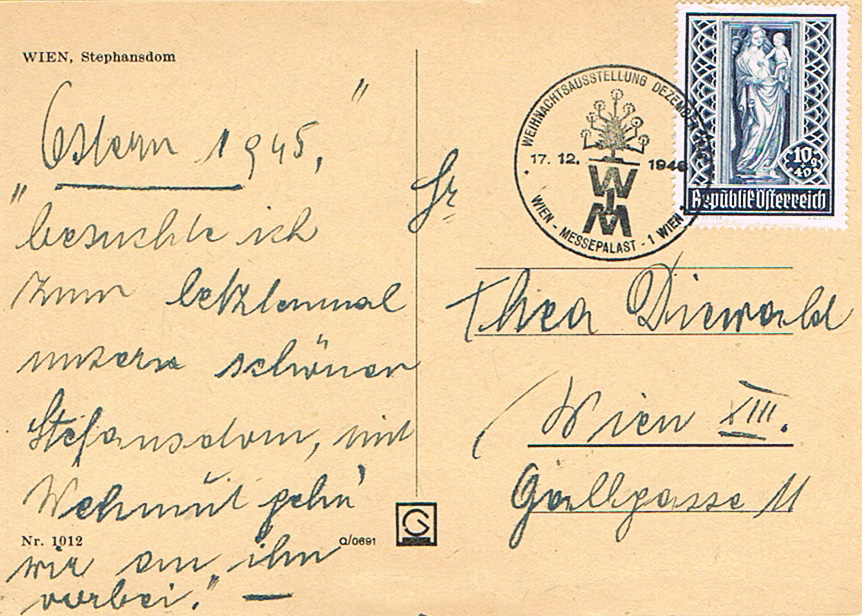 WIEN, Stephansdom
"
Ostern 1945,
"besuchte ich
zum letztenmal
unsern schönen
Stefansdom, mit
Wehmut gehn'
wir an ihm
vorbei." —
Nr. 1012
Q/0691
G
WEIHNACHTSAUSSTELLUNG DEZEMBER
17. 12. 1946
WIM
WIEN - MESSEPALAST - 1 WIEN -
10g
+40g
Republik Österreich
Fr
Thea Diewald
Wien XIII.
Gallgasse 11